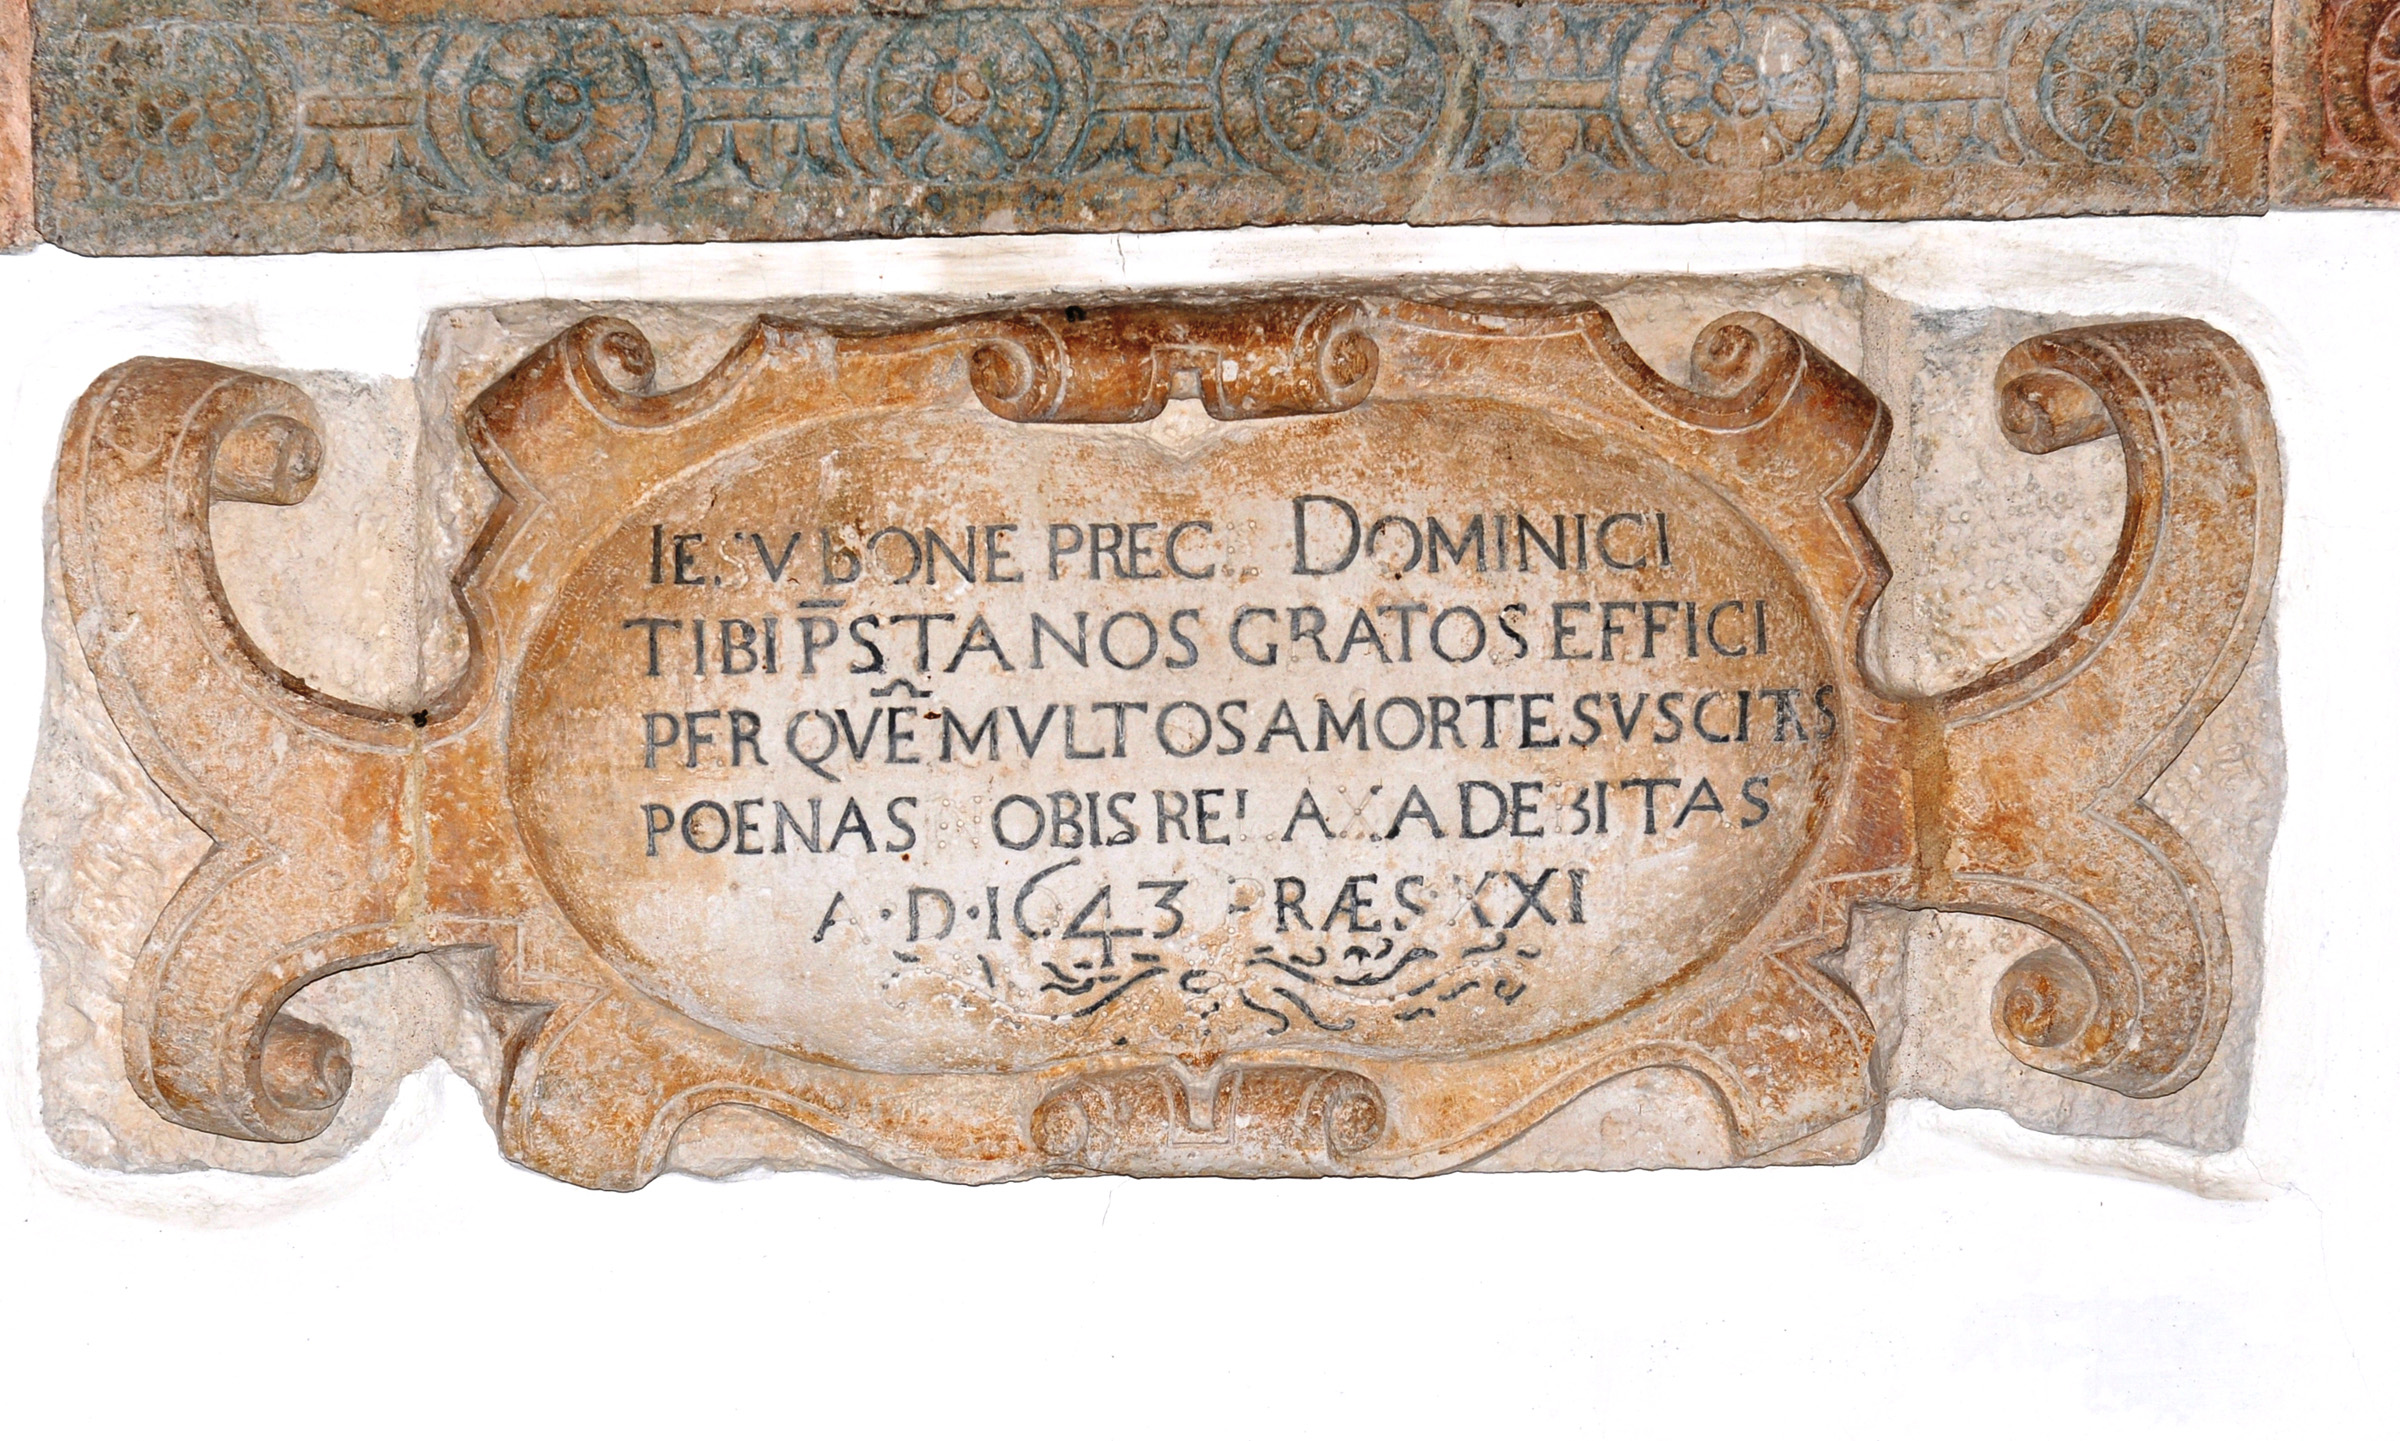 IESV BONE PRECE DOMINICI
TIBI P̄STA NOS GRATOS EFFICI
PER QVÊ MVLTOS A MORTE SVSCITAS
POENAS NOBIS RELAXA DEBITAS
A·D·1643 PRÆS·XXI